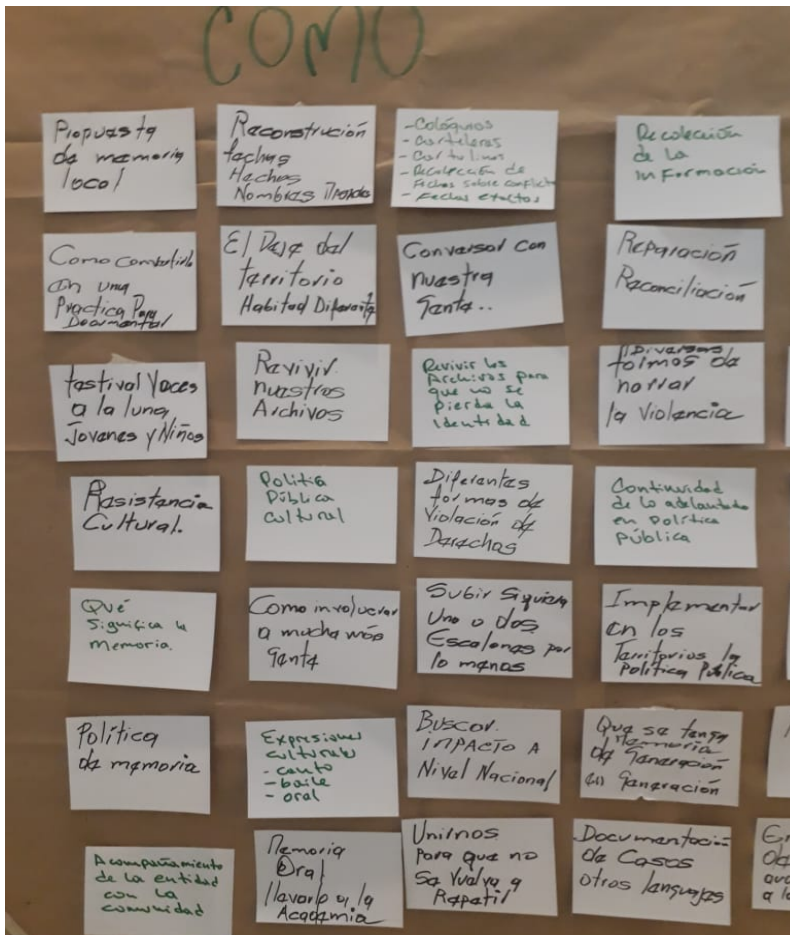 COMO
Propuesta
de memoria
local
Reconstrución
fechas
Hechos
Nombres
- Colóquios
- Carteleras
- Cartulinas
- Recolección de
Fechas sobre conflicto
- Fechas exactas
Recolección
de la
información
Como convertirlo
en una
Practica Para
Documental
El Deje del
territorio
Habitad Diferente
Conversar con
nuestra
Gente..
Reparación
Reconciliación
festival Voces
a la luna,
Jovenes y Niños
Revivir
nuestros
Archivos
Revivir los
Archivos para
que no se
pierda la
identidad
Diversas
formas de
narrar
la Violencia
Resistencia
Cultural.
Politia
Pública
cultural
Diferentes
formas de
Violación de
Derechos
Continuidad
de lo adelantado
en política
pública
Qué
significa la
memoria.
Como involucrar
a mucha más
gente
Subir siquiera
Uno o dos
Escalones por
lo menos
Implementar
en los
Territorios la
Política Pública
Política
de memoria
Expresiones
culturales
- canto
- baile
- oral
Buscar
IMPACTO A
Nivel Nacional
Que se tenga
Memoria
de Generación
en Generación
Acompañamiento
de la entidad
con la
comunidad
Memoria
Oral
llevarlo a la
Academia
Unirnos
Para que no
Se Vuelva a
Repetir
Documentació
de Casos
otros lenguajes